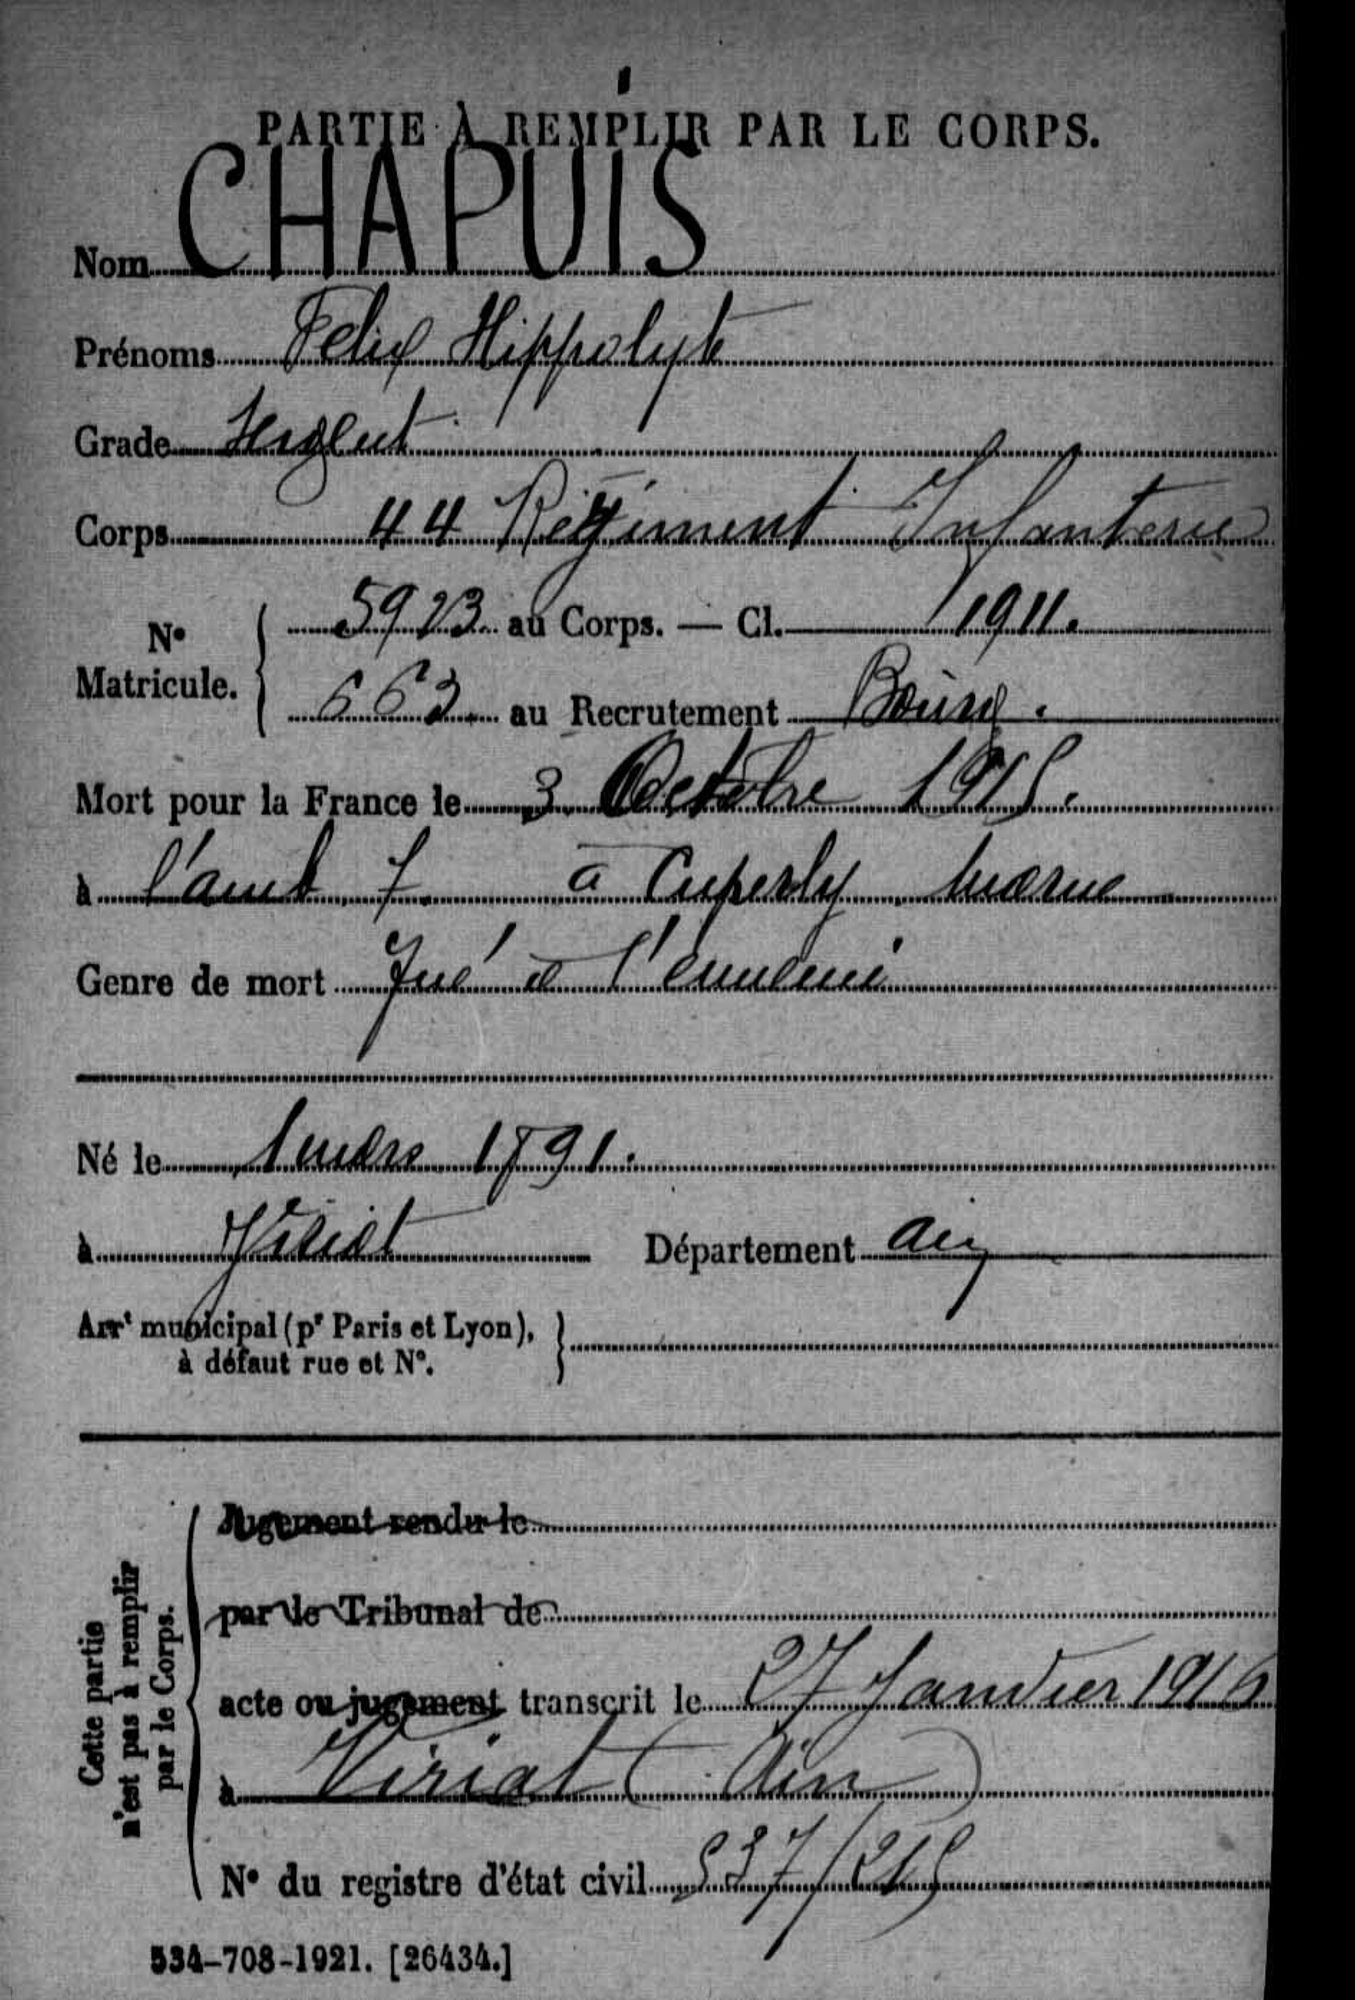 PARTIE À REMPLIR PAR LE CORPS.
Nom CHAPUIS
Prénoms Félix Hippolyte
Grade Sergent
Corps 44 Régiment Infanterie
N° Matricule. { 5923 au Corps. — Cl. 1911.
663 au Recrutement Bourg.
Mort pour la France le 3 Octobre 1915.
à l'amb 7 à Cuperly Marne
Genre de mort Tué à l'ennemi
Né le 1 mars 1891.
à Viriat Département Ain
Arrt municipal (pr Paris et Lyon), }
à défaut rue et N°.
Cette partie
n'est pas à remplir
par le Corps.
Jugement rendu le
par le Tribunal de
acte ou jugement transcrit le 27 Janvier 1916
à Viriat (Ain)
N° du registre d'état civil 537/215
534-708-1921. [26434.]